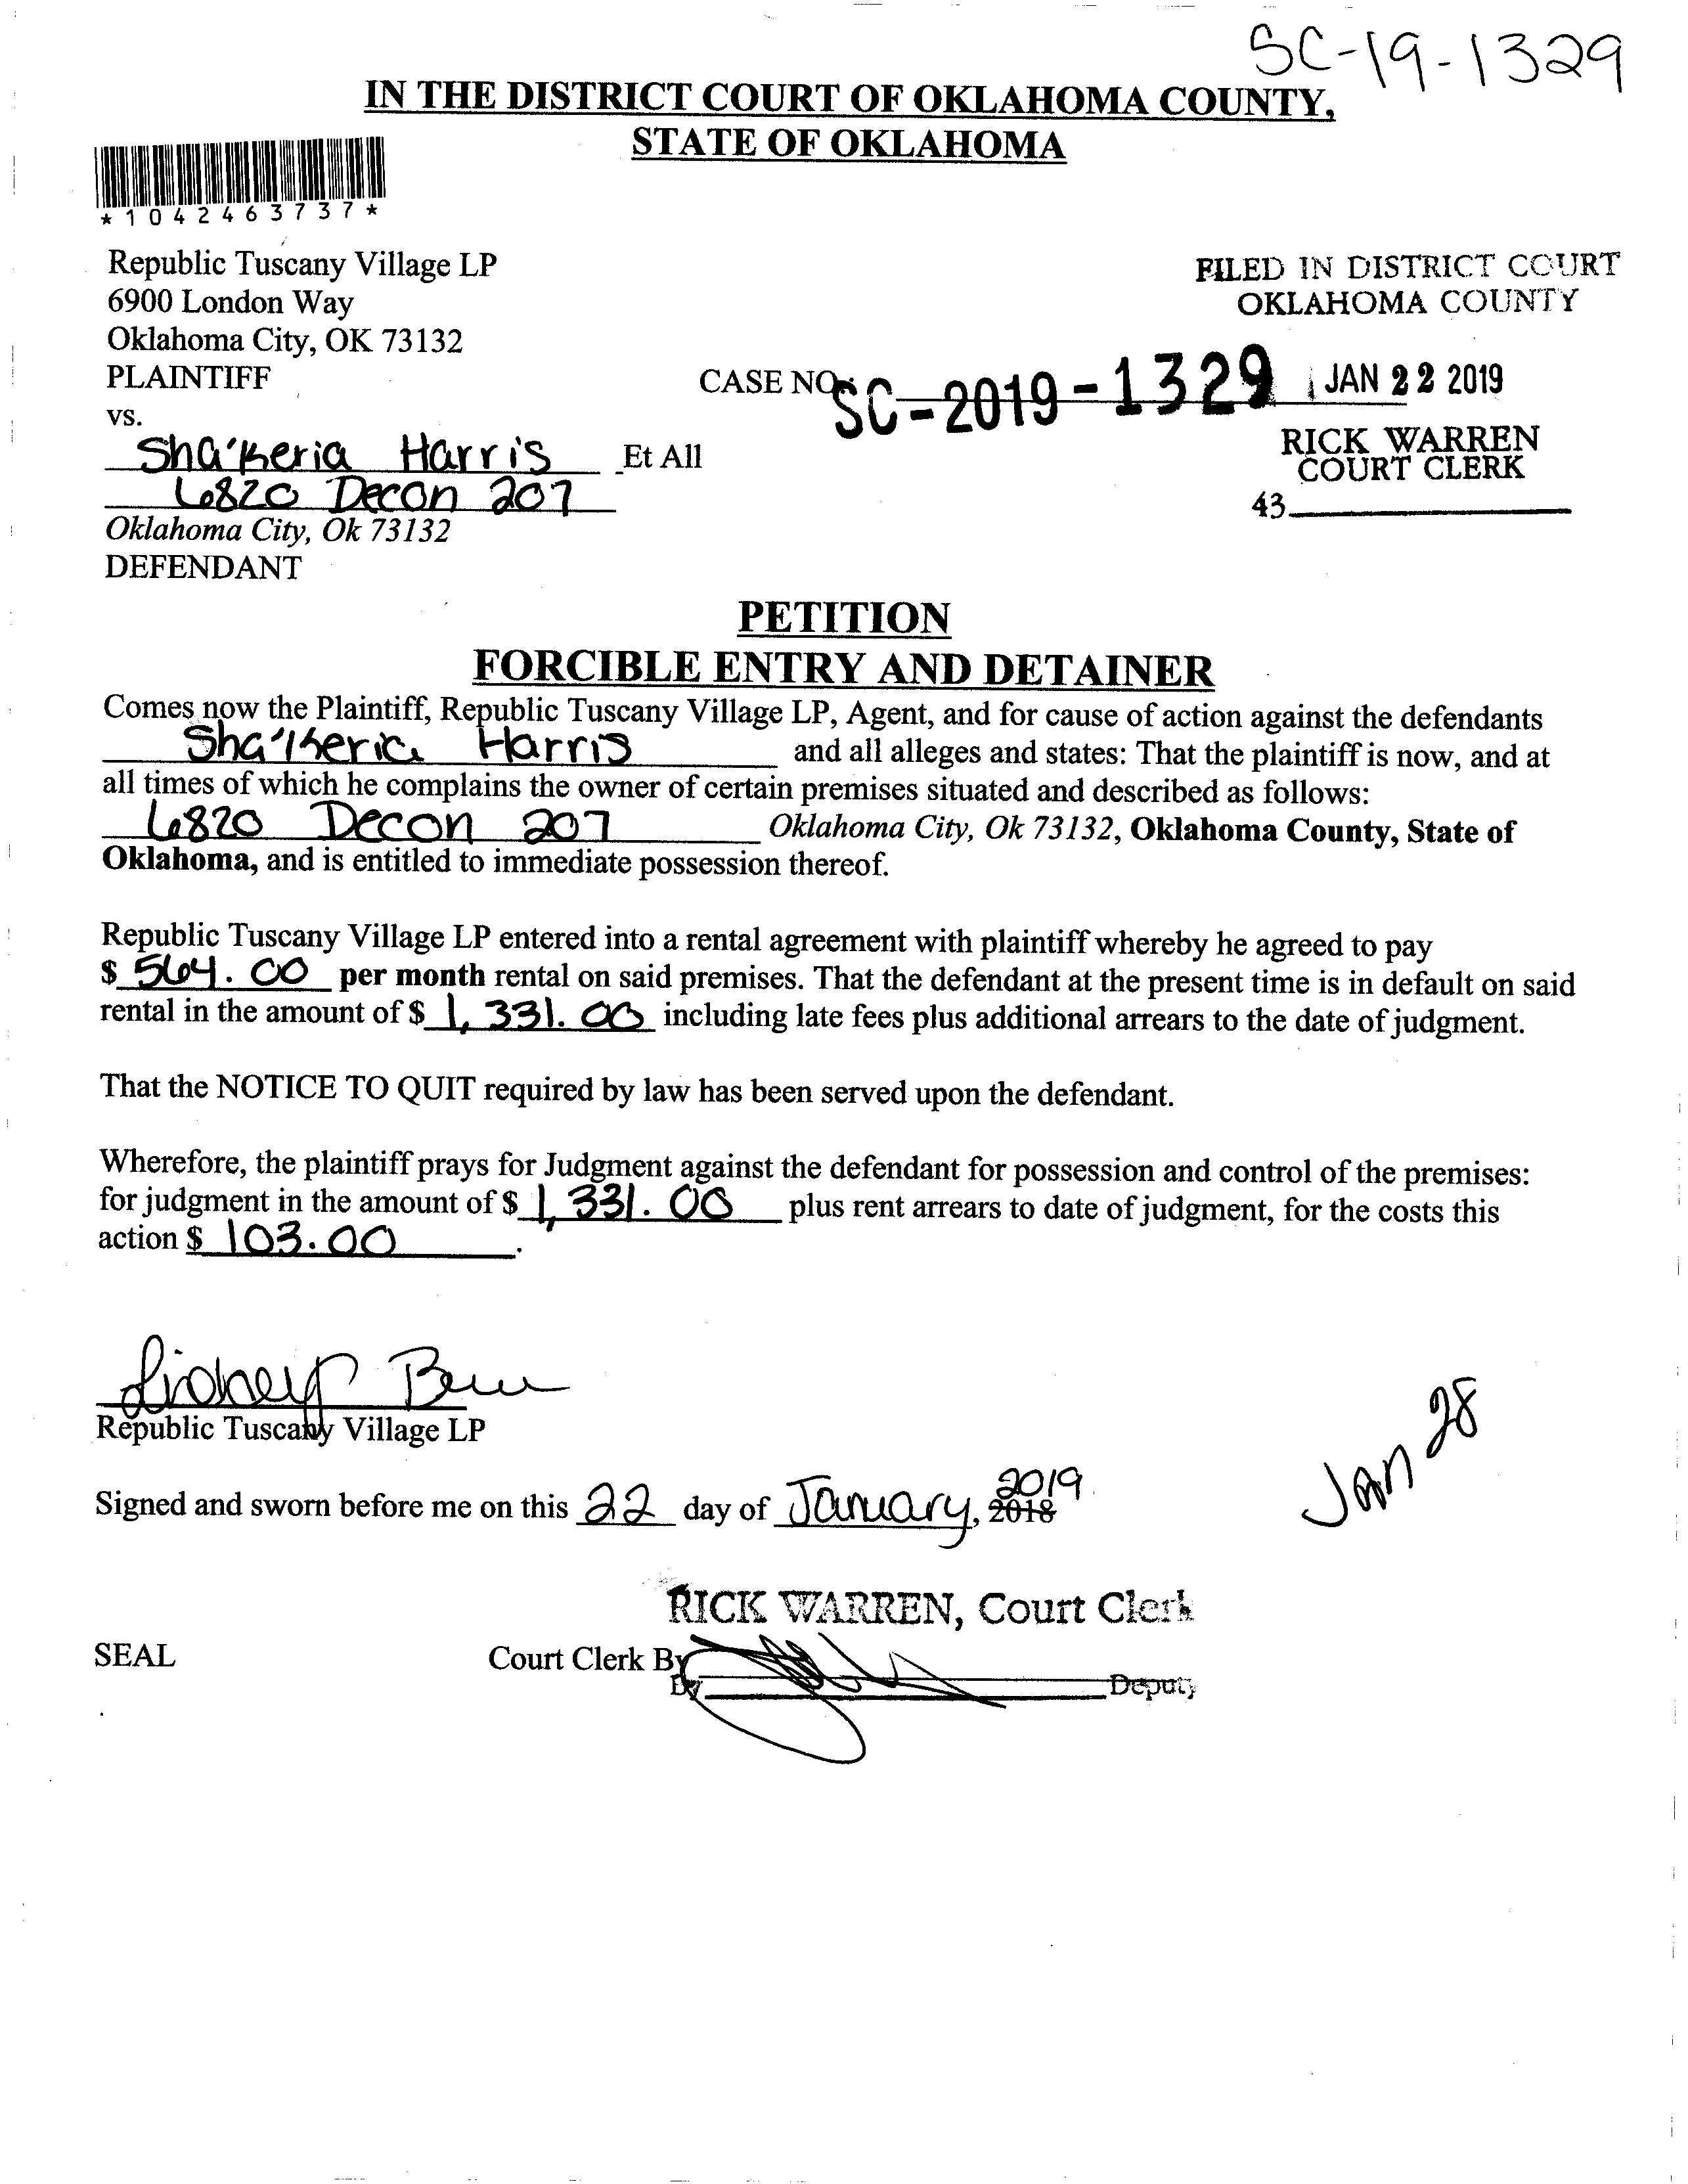 SC-19-1329
IN THE DISTRICT COURT OF OKLAHOMA COUNTY,
STATE OF OKLAHOMA
*1042463737*
Republic Tuscany Village LP
6900 London Way
Oklahoma City, OK 73132
PLAINTIFF
vs.
Sha'Keria Harris Et All
6820 Decon 207
Oklahoma City, Ok 73132
DEFENDANT
FILED IN DISTRICT COURT
OKLAHOMA COUNTY
CASE NO. SC-2019-1329 JAN 22 2019
RICK WARREN
COURT CLERK
43
PETITION
FORCIBLE ENTRY AND DETAINER
Comes now the Plaintiff, Republic Tuscany Village LP, Agent, and for cause of action against the defendants
Sha'Keria Harris and all alleges and states: That the plaintiff is now, and at
all times of which he complains the owner of certain premises situated and described as follows:
6820 Decon 207 Oklahoma City, Ok 73132, Oklahoma County, State of
Oklahoma, and is entitled to immediate possession thereof.
Republic Tuscany Village LP entered into a rental agreement with plaintiff whereby he agreed to pay
$ 564.00 per month rental on said premises. That the defendant at the present time is in default on said
rental in the amount of $ 1,331.00 including late fees plus additional arrears to the date of judgment.
That the NOTICE TO QUIT required by law has been served upon the defendant.
Wherefore, the plaintiff prays for Judgment against the defendant for possession and control of the premises:
for judgment in the amount of $ 1,331.00 plus rent arrears to date of judgment, for the costs this
action $ 103.00.
Republic Tuscany Village LP
Jan 28
Signed and sworn before me on this 22 day of January, 2019 2018
RICK WARREN, Court Clerk
SEAL
Court Clerk By
By Deputy